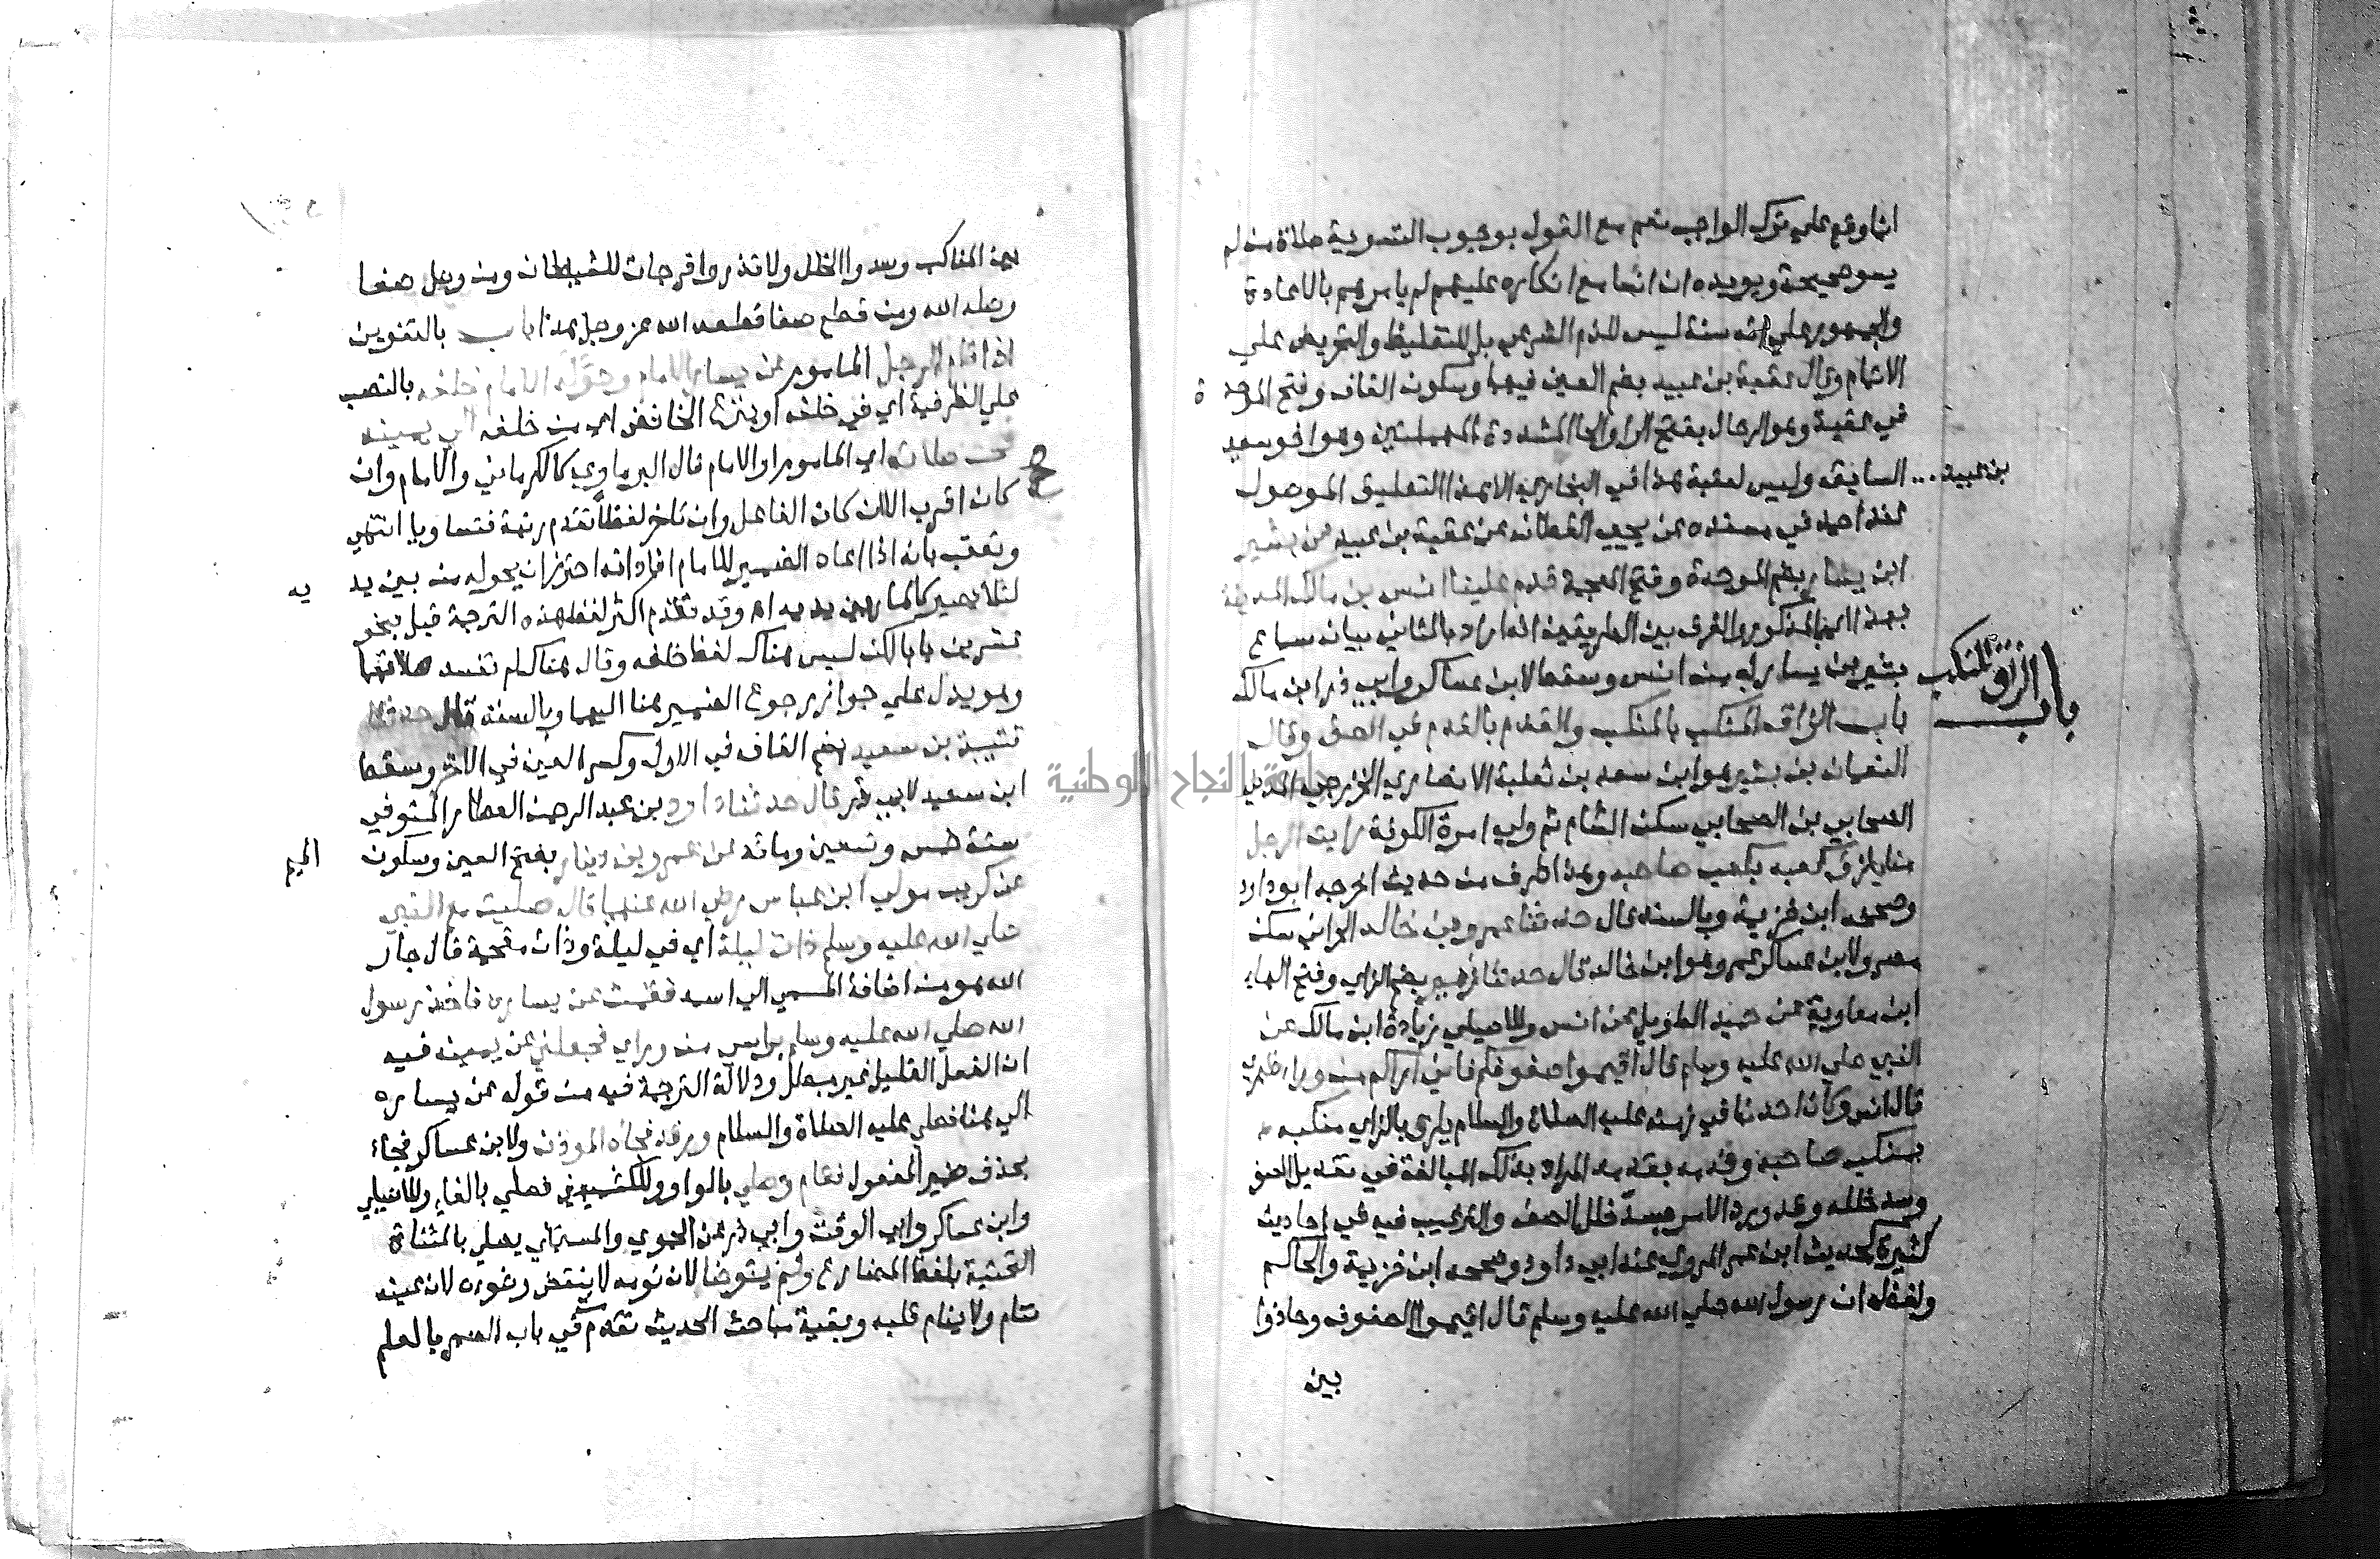 انما وقع علي ترك الواجب نعم مع القول بوجوب التسوية صلاة من لم
يسو صحيحة ويويده ان انسا مع انكاره عليهم لم يامرهم بالاعادة
والجمهور علي انه سنة ليس للذم الشرعي بل للتغليظ والتحريض علي
الاتمام وقال عقبة بن عبيد بضم العين فيهما وسكون القاف وفتح الموحدة
في عقبة وهو الرحال بفتح الرا والحا المشددة المهملتين وهو اخو سعيد
بن عبيد السابق وليس لعقبة هذا في البخاري الا هذا التعليق الموصول
عند احمد في مسنده عن يحيي القطان عن عقبة بن عبيد عن بشير
ابن يسار بضم الموحدة وفتح المعجمة قدم علينا انس بن مالك المدينة
بهذا المذكور والفرق بين الطريقين انه اراد بالثاني بيان سماع
بشير بن يسار له من انس وسقط لابن عساكر وابي ذر ابن مالك
باب الزاق المنكب
باب الزاق المنكب بالمنكب والقدم بالقدم في الصف وقال
النعمان بن بشير هو ابن سعد بن ثعلبة الانصاري الخزرجي المدني
الصحابي بن الصحابي سكن الشام ثم ولي امرة الكوفة رايت الرجل
منا يلزق كعبه بكعب صاحبه وهذا طرف من حديث اخرجه ابو داود
وصححه ابن خزيمة وبالسند قال حدثنا عمرو بن خالد الحراني سكن
مصر ولابن عساكر عمرو هو ابن خالد قال حدثنا زهير بضم الزاي وفتح الهاء
ابن معاوية عن حميد الطويل عن انس وللاصيلي بزيادة ابن مالك عن
النبي صلي الله عليه وسلم قال اقيموا صفوفكم فاني اراكم من وراء ظهري
قال انس وكان احدنا في زمنه عليه الصلاة والسلام يلزق بالزاي منكبه
بمنكب صاحبه وقدمه بقدمه المراد بذلك المبالغة في تعديل الصف
وسد خلله وقد ورد الامر بسد خلل الصف والترغيب فيه في احاديث
كثيرة كحديث ابن عمر المروي عند ابي داود وصححه ابن خزيمة والحاكم
ولفظه ان رسول الله صلي الله عليه وسلم قال اقيموا الصفوف وحاذوا
بين
بين المناكب وسدوا الخلل ولا تذروا فرجات للشيطان ومن وصل صفا
وصله الله ومن قطع صفا قطعه الله عز وجل هذا باب بالتنوين
اذا قام الرجل الماموم عن يسار الامام وحوله الامام خلفه بالنصب
علي الظرفية اي في خلفه او بنزع الخافض اي من خلفه الي يمينه
تمت صلاته اي الماموم او الامام قال البرماوي كالكرماني والامام وان
كان اقرب الا ان كان الفاعل وان تاخر لفظا تقدم رتبة فتساويا انتهي
وتعقب بانه اذا اعاد الضمير للامام افاد انه احترز ان يحوله من بين يديه
لئلا يصير كالمار بين يديه اه وقد تقدم اكثر لفظ هذه الترجمة قبل بنحو
عشرين بابا لكن ليس هناك لفظ خلفه وقال هناك لم تفسد صلاتهما
وهو يدل علي جواز رجوع الضمير هنا اليهما وبالسند قال حدثنا
قتيبة بن سعيد بضم القاف في الاول وكسر العين في الاخر وسقط
جامعة النجاح الوطنية
ابن سعيد لابي ذر قال حدثنا داود بن عبد الرحمن العطار المتوفي
سنة خمس وتسعين ومائة عن عمرو بن دينار بفتح العين وسكون الميم
عن كريب مولي ابن عباس رضي الله عنهما قال صليت مع النبي
صلي الله عليه وسلم ذات ليلة اي في ليلة وذات مقحمة قال جار
الله هو من اضافة المسمي الي اسمه فقمت عن يساره فاخذ رسول
الله صلي الله عليه وسلم براسي من وراي فجعلني عن يمينه فيه
ان الفعل القليل غير مبطل ودلالة الترجمة فيه من قوله عن يساره
الي هنا فصلي عليه الصلاة والسلام ورقد فجاه الموذن ولابن عساكر فجاء
بحذف ضمير المفعول فقام وصلي بالواو وللكشميهني فصلي بالفاء وللاصيلي
وابن عساكر وابي الوقت وابي ذر عن الحموي والمستملي يصلي بالمثناة
التحتية بلفظ المضارع ولم يتوضا لان نومه لا ينقض وضوءه لان عينه
تنام ولا ينام قلبه وبقية مباحث الحديث تقدم في باب السمر بالعلم